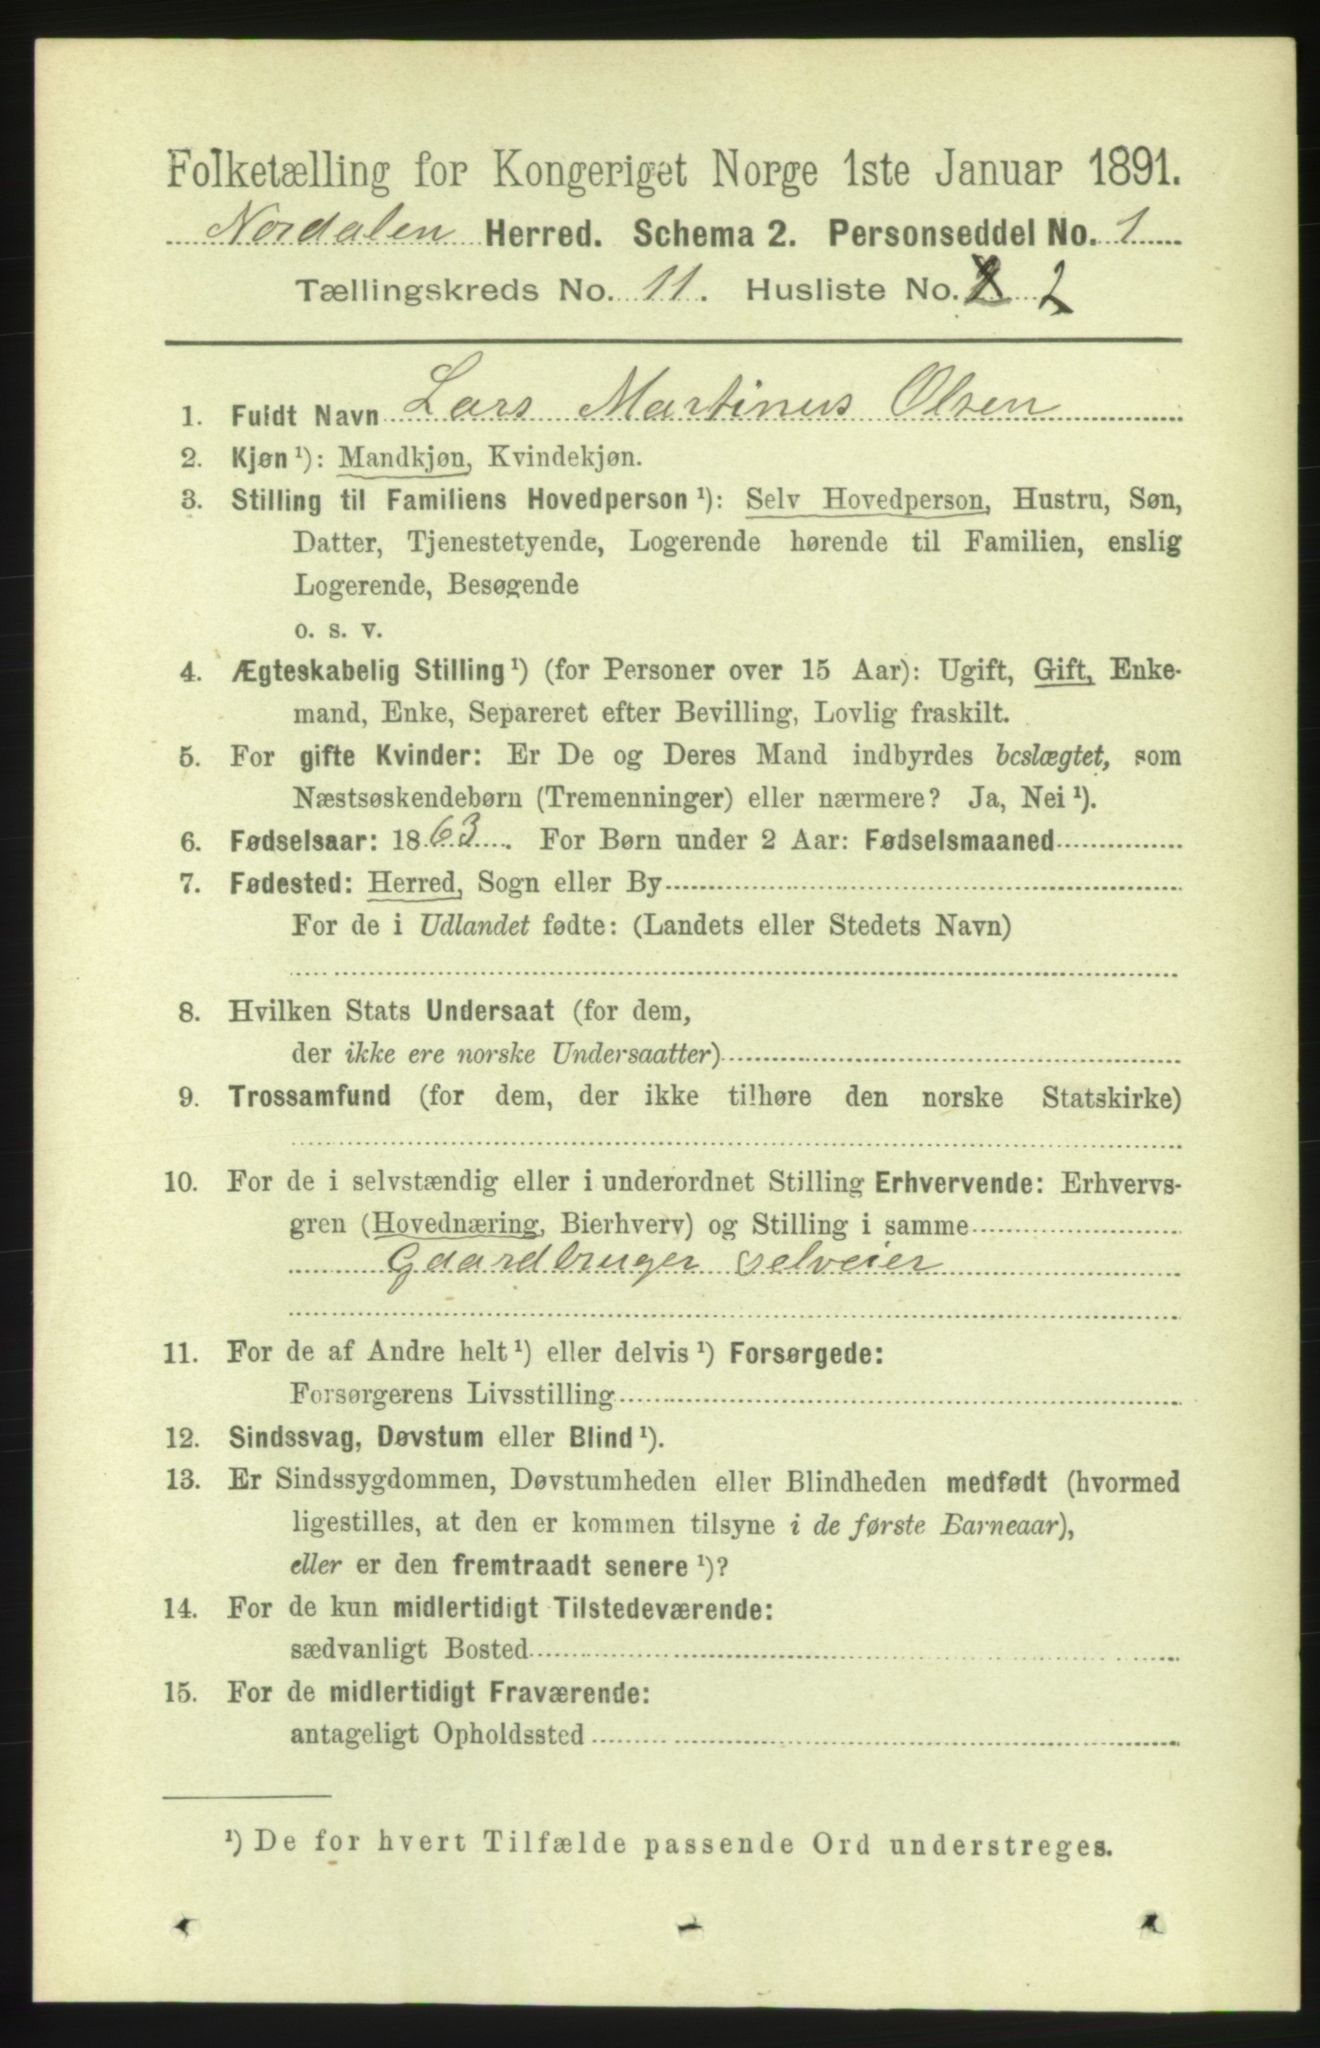 Folketælling for Kongeriget Norge 1ste Januar 1891.
Nordalen Herred. Schema 2. Personseddel No. 1
Tællingskreds No. 11. Husliste No. 2
1. Fuldt Navn Lars Martinus Olsen
2. Kjøn¹): Mandkjøn, Kvindekjøn.
3. Stilling til Familiens Hovedperson¹): Selv Hovedperson, Hustru, Søn,
Datter, Tjenestetyende, Logerende hørende til Familien, enslig
Logerende, Besøgende
o. s. v.
4. Ægteskabelig Stilling¹) (for Personer over 15 Aar): Ugift, Gift, Enke-
mand, Enke, Separeret efter Bevilling, Lovlig fraskilt.
5. For gifte Kvinder: Er De og Deres Mand indbyrdes beslægtet, som
Næstsøskendebørn (Tremenninger) eller nærmere? Ja, Nei¹).
6. Fødselsaar: 1863. For Børn under 2 Aar: Fødselsmaaned
7. Fødested: Herred, Sogn eller By
For de i Udlandet fødte: (Landets eller Stedets Navn)
8. Hvilken Stats Undersaat (for dem,
der ikke ere norske Undersaatter)
9. Trossamfund (for dem, der ikke tilhøre den norske Statskirke)
10. For de i selvstændig eller i underordnet Stilling Erhvervende: Erhvervs-
gren (Hovednæring, Bierhverv) og Stilling i samme
Gaardbruger selveier
11. For de af Andre helt¹) eller delvis¹) Forsørgede:
Forsørgerens Livsstilling
12. Sindssvag, Døvstum eller Blind¹).
13. Er Sindssygdommen, Døvstumheden eller Blindheden medfødt (hvormed
ligestilles, at den er kommen tilsyne i de første Barneaar),
eller er den fremtraadt senere¹)?
14. For de kun midlertidigt Tilstedeværende:
sædvanligt Bosted
15. For de midlertidigt Fraværende:
antageligt Opholdssted
¹) De for hvert Tilfælde passende Ord understreges.